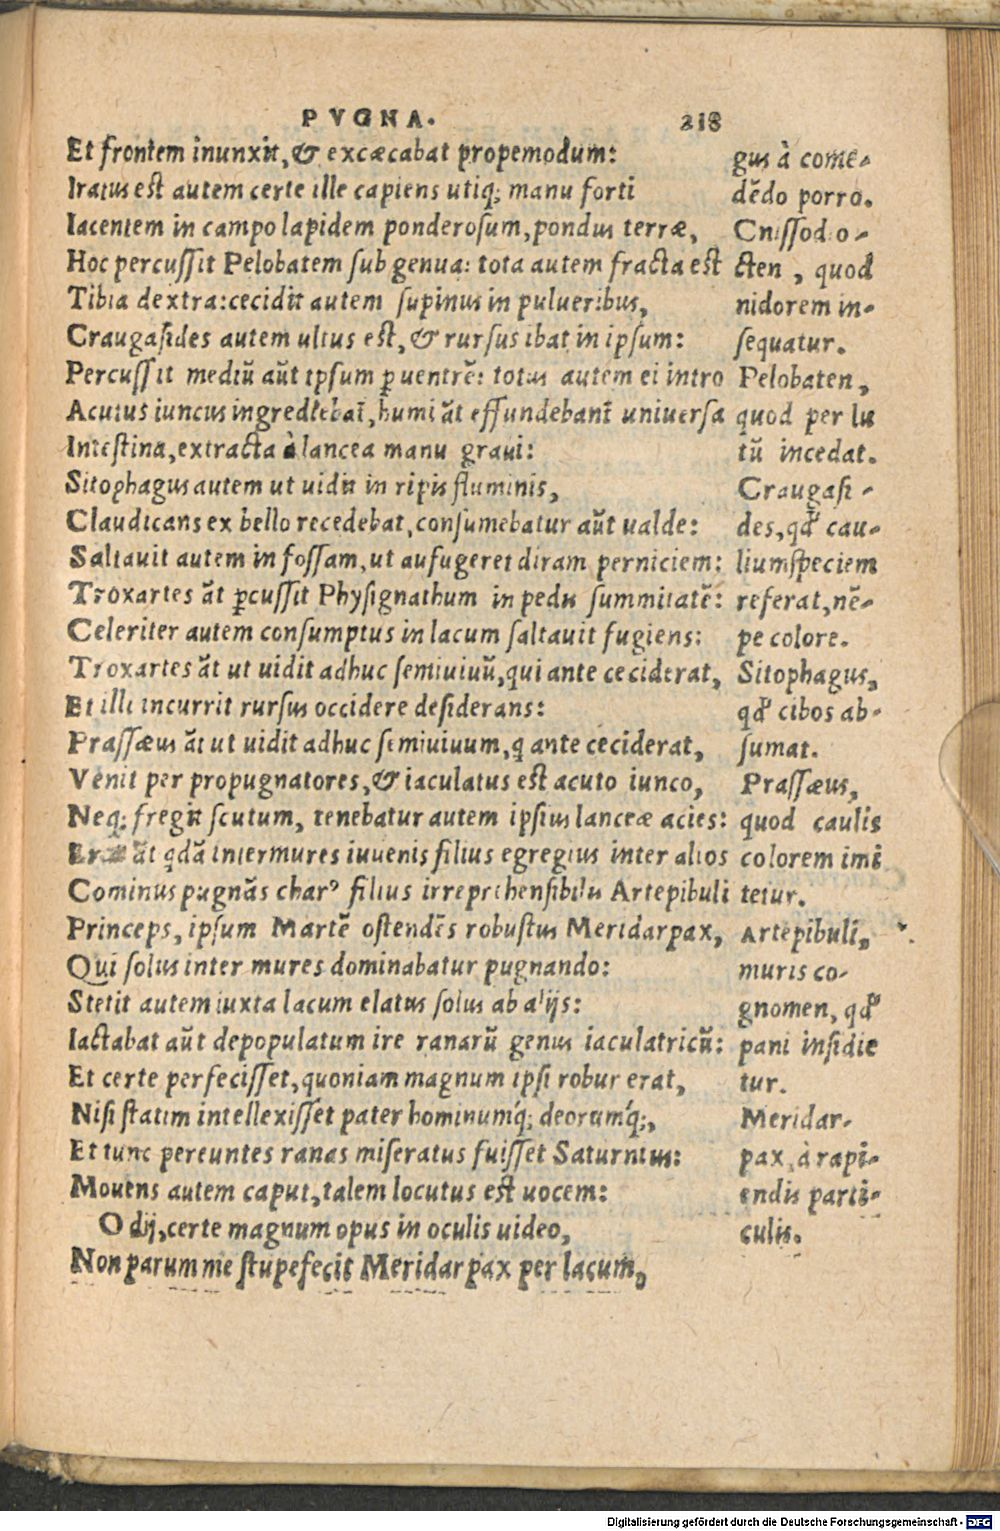 PVGNA. 218
Et frontem inunxit, & excæcabat propemodum:
Iratus est autem certe ille capiens utiq; manu forti
Iacentem in campo lapidem ponderosum, pondus terræ,
Hoc percussit Pelobatem sub genua: tota autem fracta est
Tibia dextra: cecidit autem supinus in pulueribus,
Craugasides autem ultus est, & rursus ibat in ipsum:
Percussit mediũ aũt ipsum ꝑ uentrẽ: totus autem ei intro
Acutus iuncus ingrediebat̃, humi ãt effundebant̃ uniuersa
Intestina, extracta à lancea manu graui:
Sitophagus autem ut uidit in ripis fluminis,
Claudicans ex bello recedebat, consumebatur aũt ualde:
Saltauit autem in fossam, ut aufugeret diram perniciem:
Troxartes ãt ꝑcussit Physignathum in pedis summitatẽ:
Celeriter autem consumptus in lacum saltauit fugiens:
Troxartes ãt ut uidit adhuc semiuiuũ, qui ante ceciderat,
Et illi incurrit rursus occidere desiderans:
Prassæus ãt ut uidit adhuc semiuiuum, q ante ceciderat,
Venit per propugnatores, & iaculatus est acuto iunco,
Neq; fregit scutum, tenebatur autem ipsius lanceæ acies:
ãt qdã inter mures iuuenis filius egregius inter alios
Cominus pugnãs charꝰ filius irreprehensibilis Artepibuli
Princeps, ipsum Martẽ ostendẽs robustus Meridarpax,
Qui solus inter mures dominabatur pugnando:
Stetit autem iuxta lacum elatus solus ab alijs:
Iactabat aũt depopulatum ire ranarũ genus iaculatricũ:
Et certe perfecisset, quoniam magnum ipsi robur erat,
Nisi statim intellexisset pater hominumq́; deorumq́;,
Et tunc pereuntes ranas miseratus fuisset Saturnius:
Mouens autem caput, talem locutus est uocem:
O dij, certe magnum opus in oculis uideo,
Non parum me stupefecit Meridarpax per lacum,
gus à come-
dẽdo porro.
Cnissodio-
cten, quod
nidorem in-
sequatur.
Pelobaten,
quod per lu
tũ incedat.
Craugasi-
des, qđ cau-
lium speciem
referat, nẽ-
pe colore.
Sitophagus,
qđ cibos ab-
sumat.
Prassæus,
quod caulis
colorem imi
tetur.
Artepibuli,
muris co-
gnomen, qđ
pani insidie
tur.
Meridar-
pax, à rapi-
endis parti-
culis.
Digitalisierung gefördert durch die Deutsche Forschungsgemeinschaft - DFG